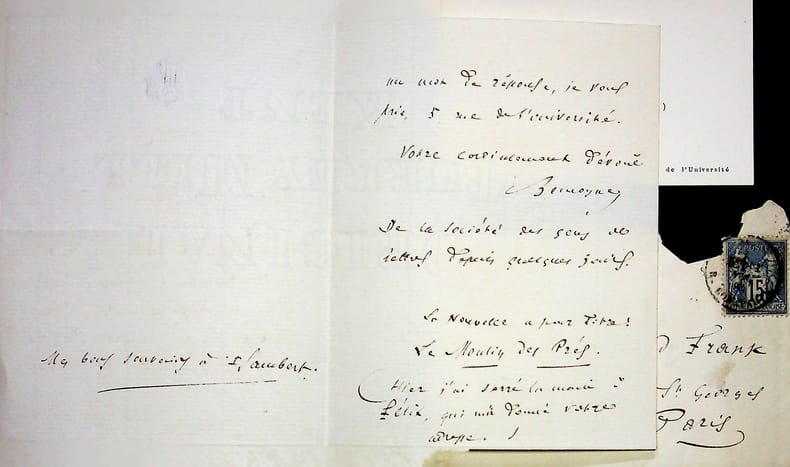 un mot de réponse, je vous
prie, 5 rue de l'université.
Votre cordialement dévoué
De la société des gens de
lettres depuis quelques jours.
La Nouvelle a pour titre :
Le Moulin des Prés.
(Hier j'ai serré la main à
Félix, qui m'a donné votre
adresse. )
Mes bons souvenirs à Lambert.
de l'Université
POSTE
15
d Frank
St Georges
Paris